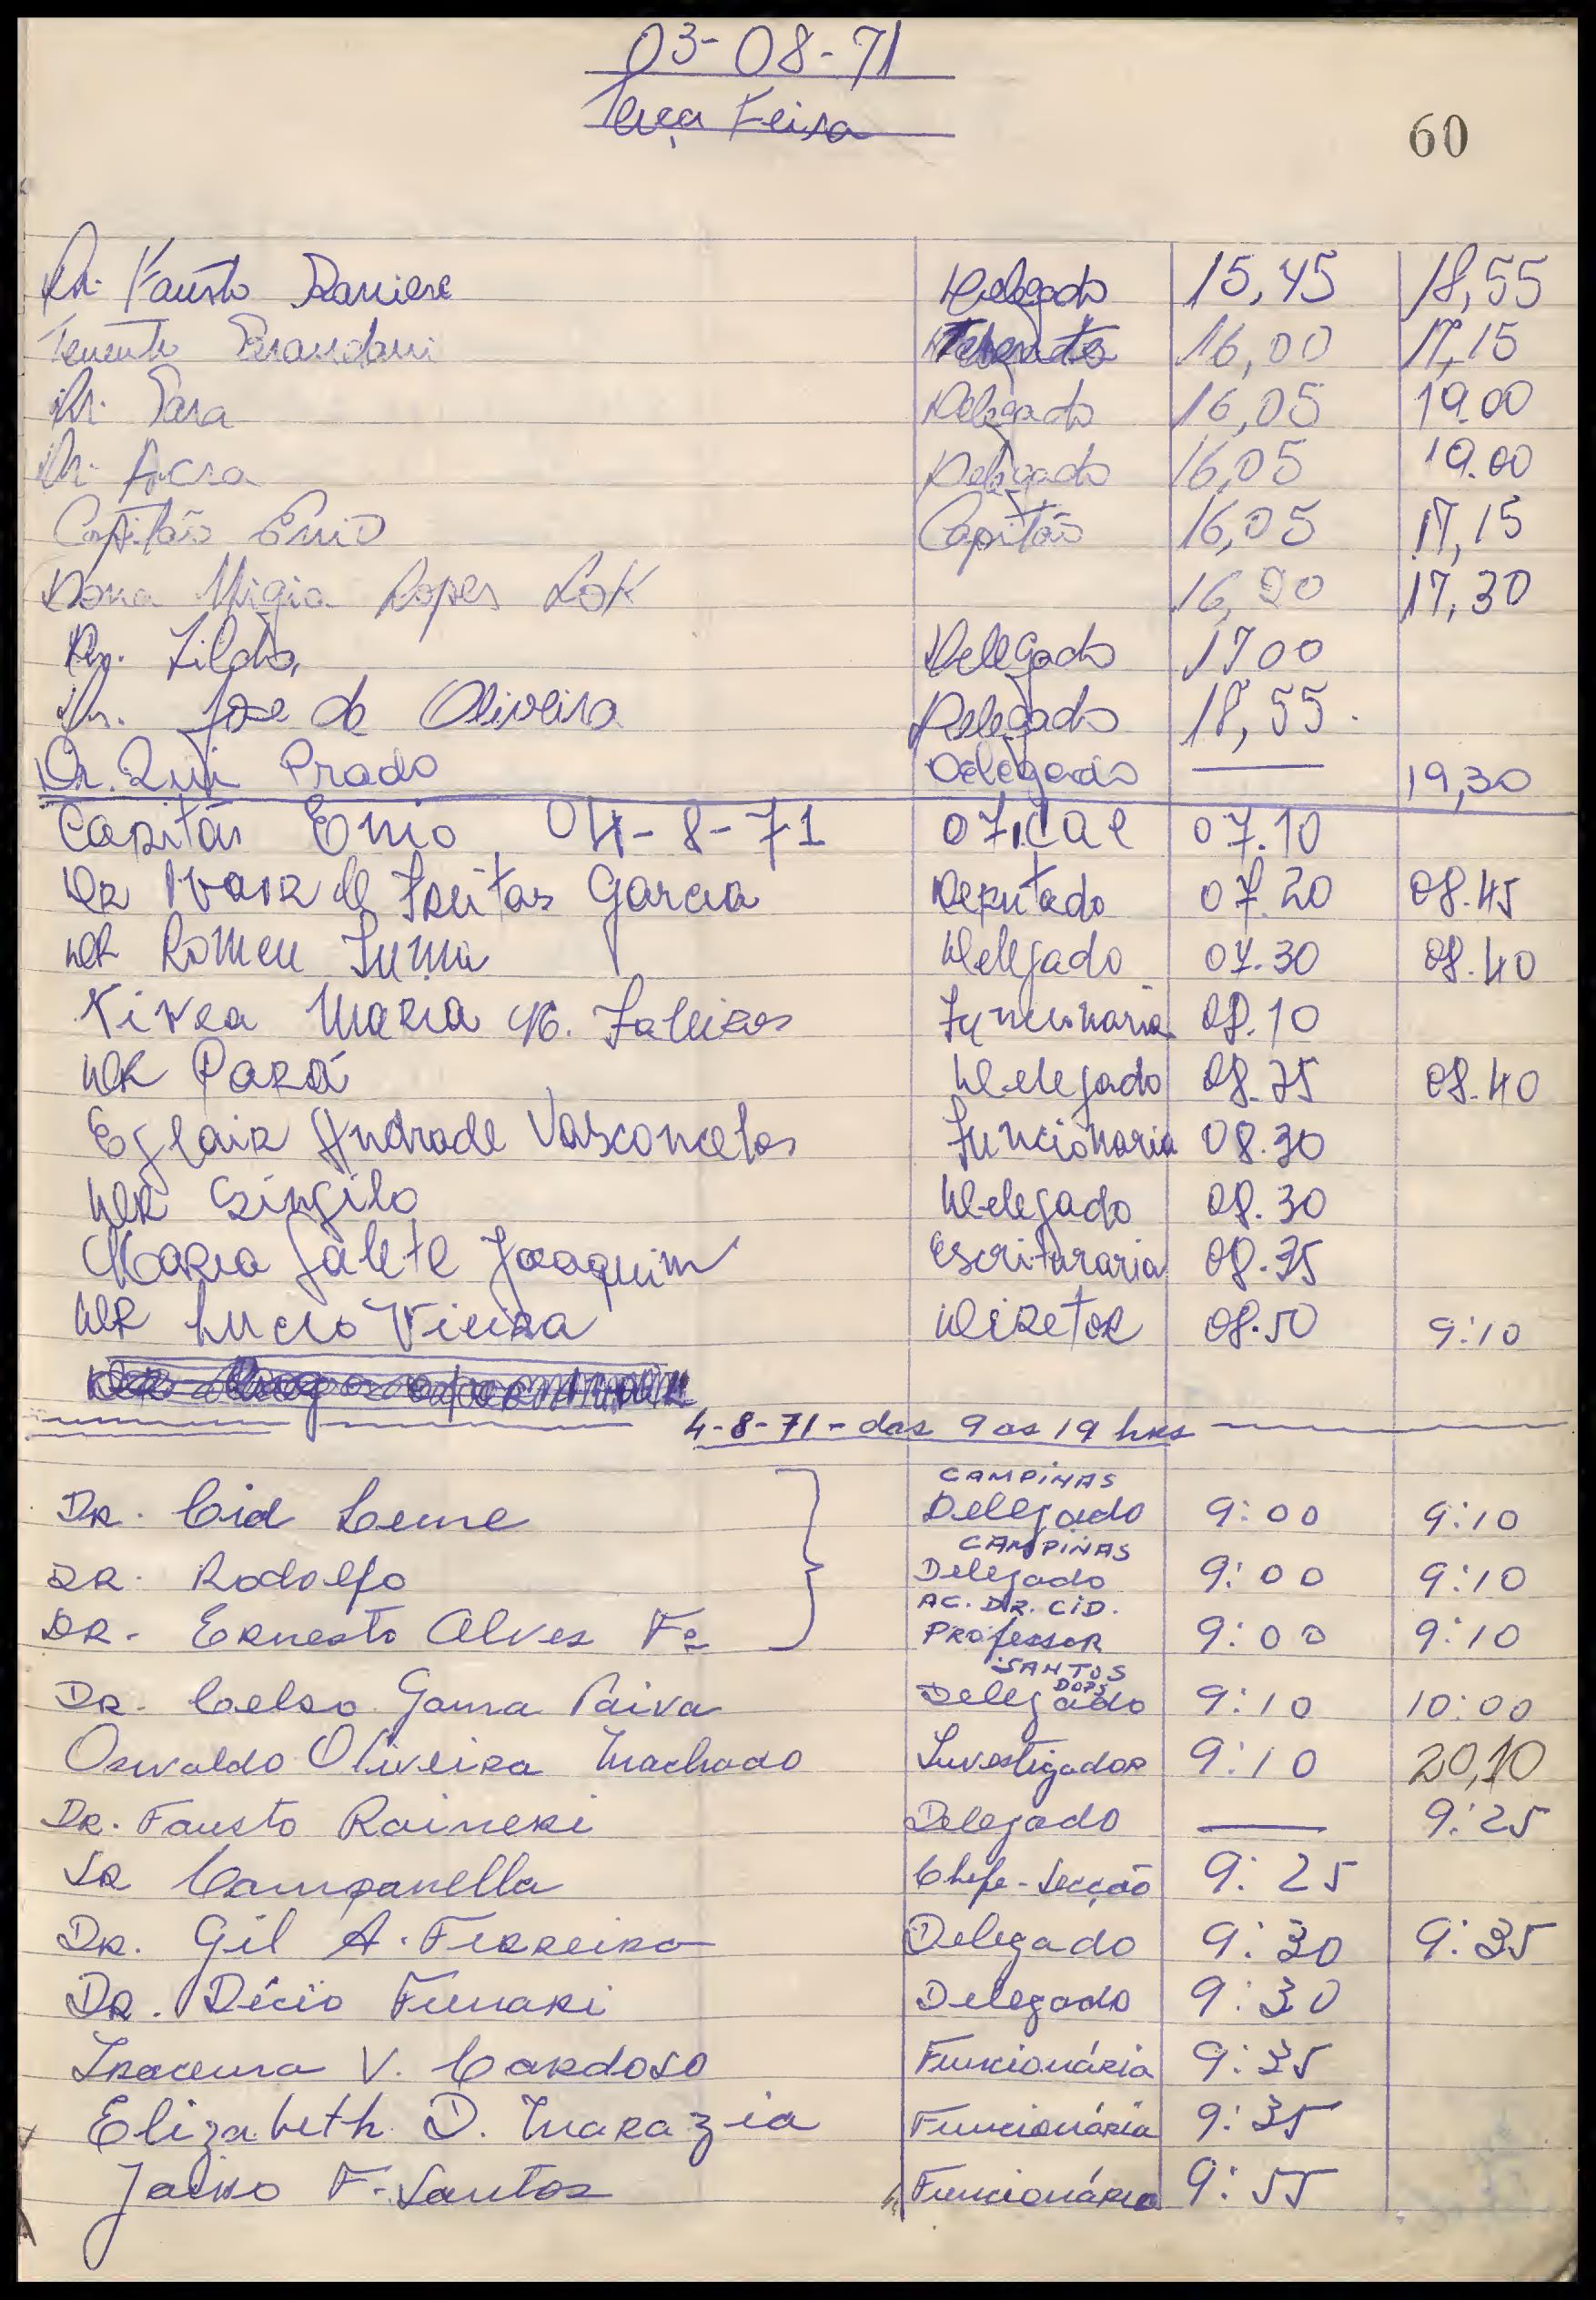 03-08-71
Terça Feira
60
Dr. Fausto Raniere Delegado 15,45 18,55
Tenente Tenente 16,00 17,15
Dr. Delegado 16,05 19.00
Dr. Acra Delegado 16,05 19.00
Capitão Enio Capitão 16,05 17,15
Dona Lopes 16, 17,30
Dr. Zildo, Delegado 17 00
Dr. Jose de Oliveira Delegado 18,55.
Dr. Prado Delegado — 19,30
Capitão Enio 04-8-71 oficial 07.10
Dr de Freitas Garcia Deputado 07.20 08.45
Dr Romeu Tuma Delegado 07.30 08.40
Nivea Maria Funcionaria 08.10
Dr Pará Delegado 08. 08.40
Eglair Andrade Vasconcelos Funcionaria 08.30
Dr Singilo Delegado 08.30
Maria Salete Joaquim Escrituraria 08.35
Dr Lucio Vieira Diretor 08.50 9:10
4-8-71 - das 9 as 19 hrs
CAMPINAS
Dr. Cid Leme Delegado 9:00 9:10
CAMPINAS
Dr. Rodolfo Delegado 9:00 9:10
AC. DR. CID.
Dr. Ernesto Alves Fº Professor 9:00 9:10
SANTOS
DOPS
Dr. Celso Gama Paiva Delegado 9:10 10:00
Oswaldo Oliveira Machado Investigador 9:10 20,10
Dr. Fausto Raineri Delegado — 9:25
Sr Campanella Chefe-Secção 9:25
Dr. Gil A. Ferreira Delegado 9:30 9:35
Dr. Décio Funari Delegado 9:30
Iracema V. Cardoso Funcionária 9:35
Elizabeth D. Marazia Funcionária 9:35
F. Santos Funcionária 9:55